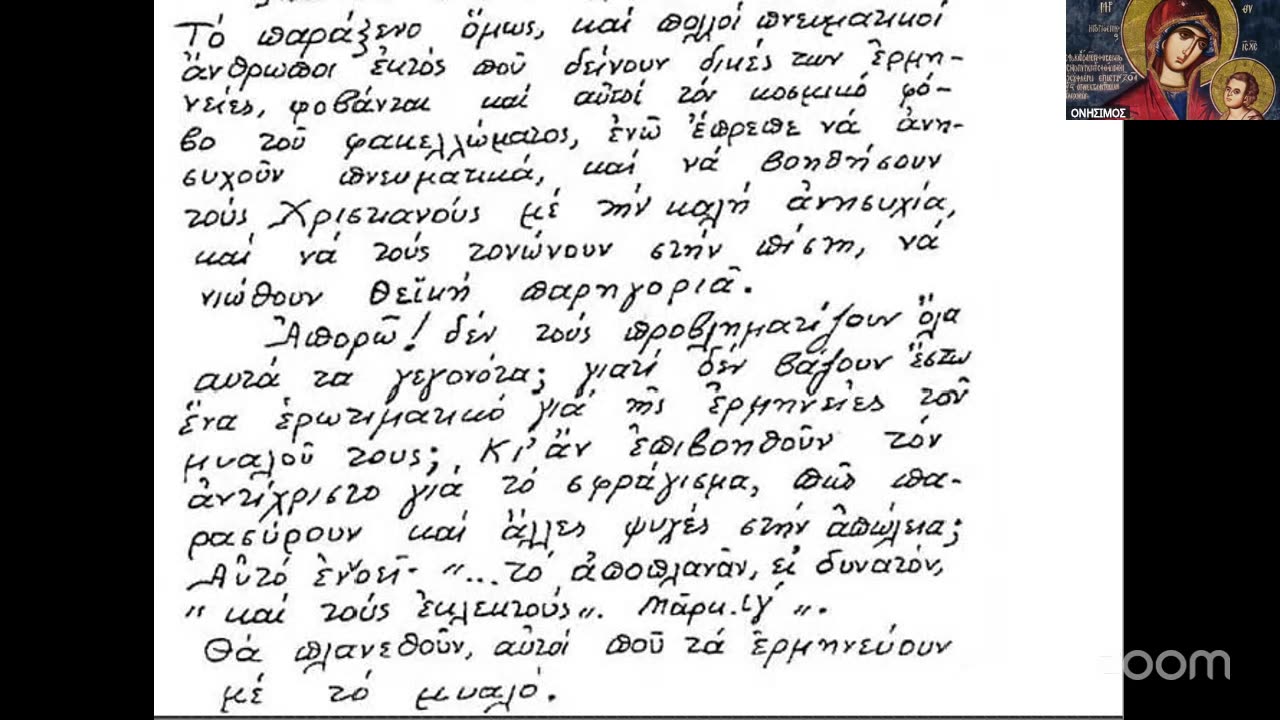 Τό παράξενο ὅμως, καί πολλοί πνευματικοί
ἄνθρωποι ἐκτός ποῦ δείνουν δικές των ἑρμη-
νείες, φοβάνται καί αὐτοί τόν κοσμικό φό-
βο τοῦ φακελλώματος, ἐνῶ ἔπρεπε νά ἀνη-
συχοῦν πνευματικά, καί νά βοηθήσουν
τούς Χριστιανούς μέ τήν καλή ἀνησυχία,
καί νά τούς τονώνουν στήν πίστη, νά
νιώθουν θεϊκή παρηγοριᾶ.
Ἀπορῶ! δέν τούς προβληματίζουν ὅλα
αυτά τα γεγονότα; γιατί δέν βάζουν ἔστω
ἕνα ἐρωτιματικό γιά τῆς ἑρμηνεῖες τοῦ
μυαλοῦ τους; Κι' ἄν ἐπιβοηθοῦν τόν
ἀντίχριστο γιά τό σφράγισμα, πῶς πα-
ρασύρουν καί ἄλλες ψυχές στήν ἀπώλεια;
Αὐτό ἐννοεῖ- "...τό ἀποπλανᾶν, εἰ δυνατόν,
" καί τούς ἐκλεκτούς". Μᾶρκ.ιγ´ ".
Θά πλανεθοῦν, αὐτοί ποῦ τά ἑρμηνεύουν
μέ τό μυαλό.
ΟΝΗΣΙΜΟΣ
zoom